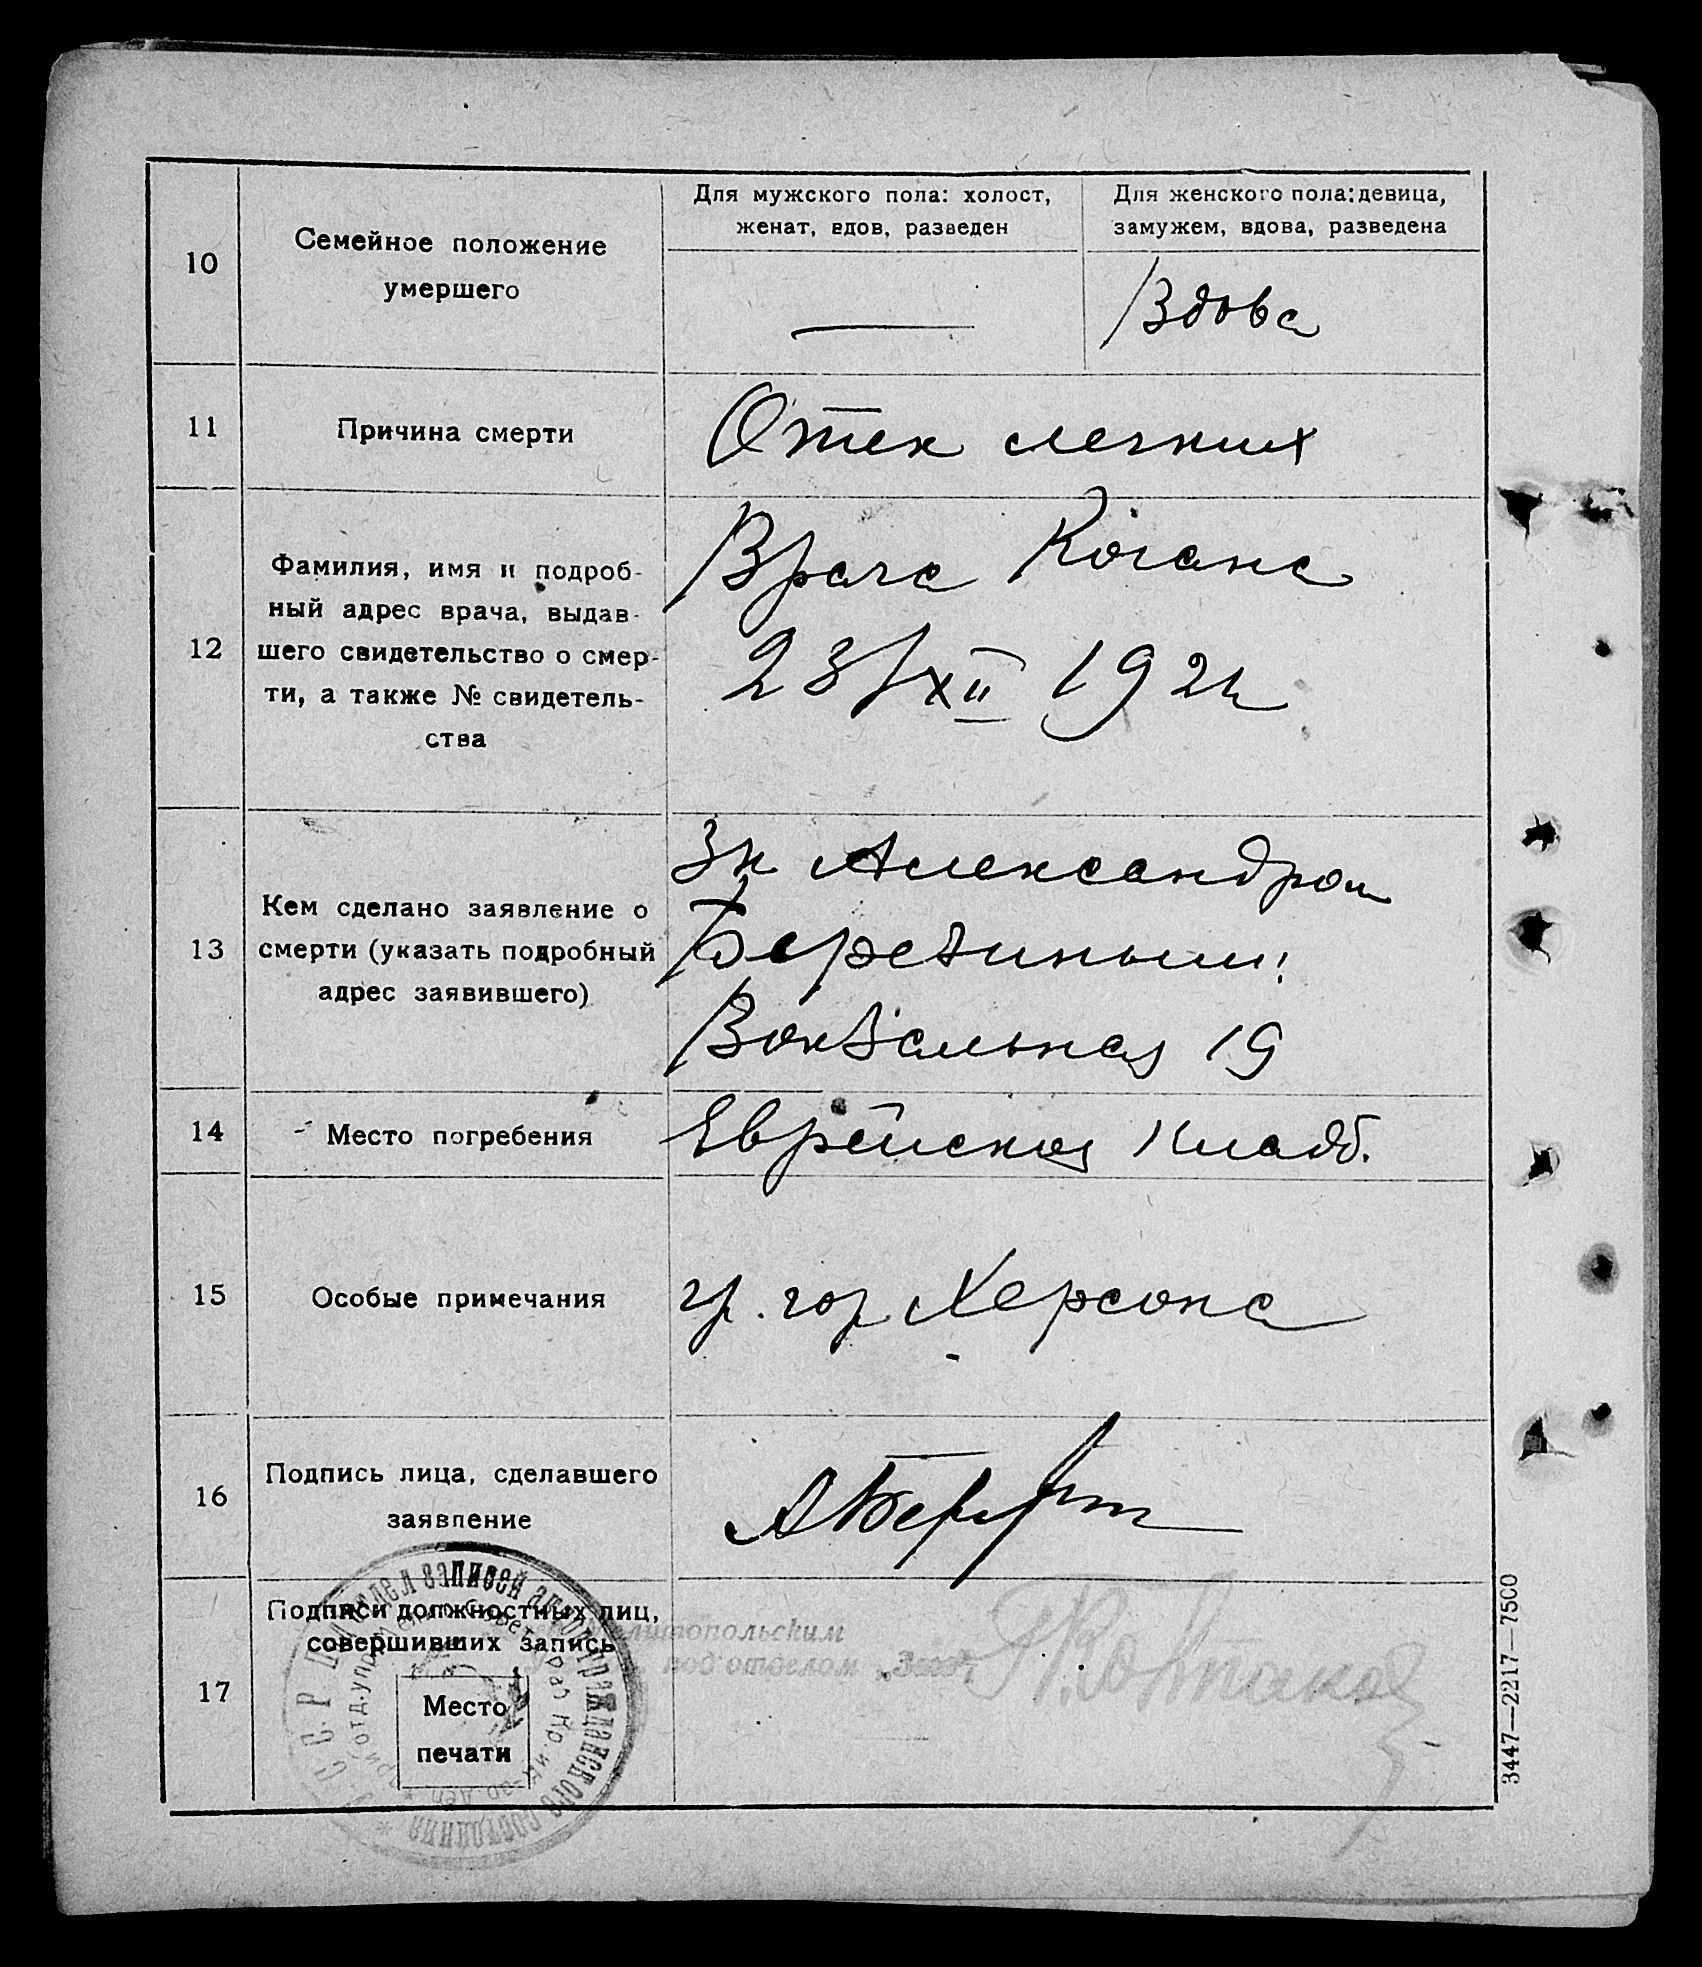 10
Семейное положение
умершего
Для мужского пола: холост,
женат, вдов, разведен
Для женского пола: девица,
замужем, вдова, разведена
Вдова
11
Причина смерти
Отек легких
12
Фамилия, имя и подроб-
ный адрес врача, выдав-
шего свидетельство о смер-
ти, а также № свидетель-
ства
Врача Когана
23/XII 192
13
Кем сделано заявление о
смерти (указать подробный
адрес заявившего)
Александром
Березиным
Вокзальная 19
14
Место погребения
Еврейское Кладб.
15
Особые примечания
гр. гор Херсона
16
Подпись лица, сделавшего
заявление
17
Подписи должностных лиц,
совершивших запись
Место
печати
Мелитопольским
подотделом „Загс“
записей актов гражданского состояния
3447—2217—7500